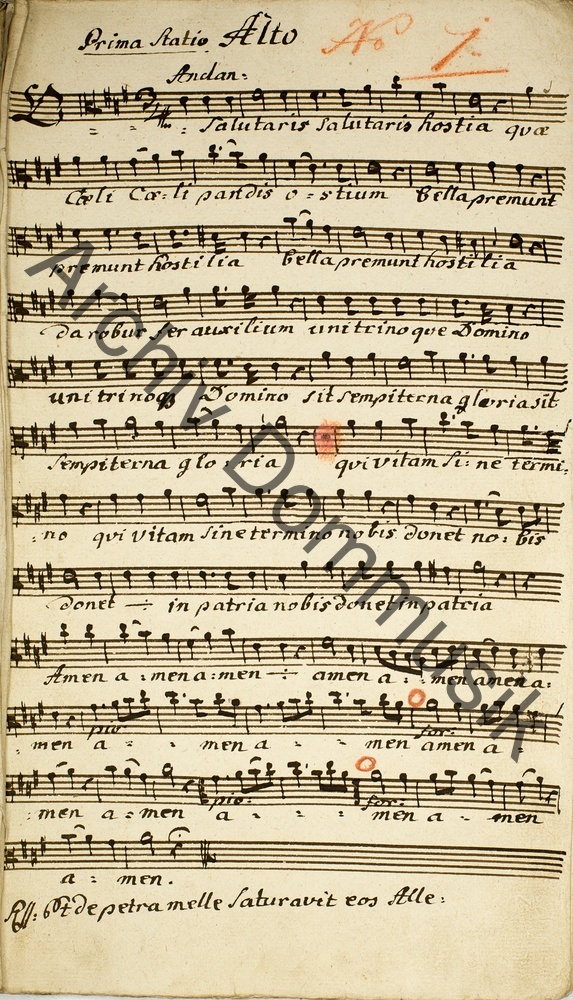 Prima Statio Alto No 1.
Andan:
O - - - Salutaris Salutaris hostia quæ
Cœli Cœ-li pandis o-stium bella premunt
premunt hostilia bella premunt hostilia
da robur fer auxilium uni trinoque Domino
uni trinoq Domino sit sempiterna gloria sit
Sempiterna glo-ria qui vitam si-ne termi-
-no qui vitam sine termino nobis donet no-bis
donet ÷ in patria nobis donet in patria
Amen a-men a-men ÷ amen a-men amen a:
pio: for:
men a - - - men a - - - men amen a -
pio: for:
:men a-men a - - - - men a - men
a - men.
Rss: Et de petra melle saturavit eos Alle:
Archiv Dommusik